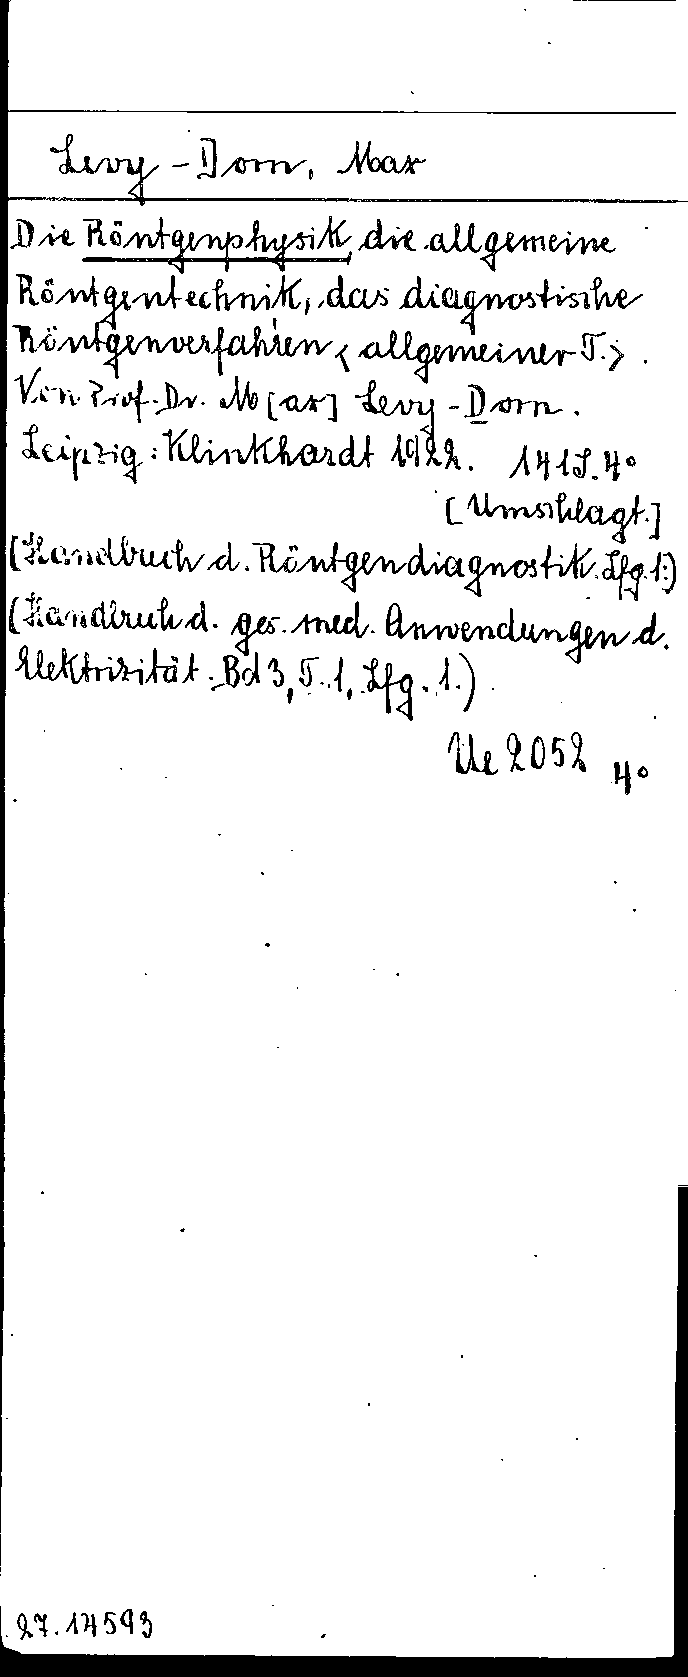 Levy-Dorn, Max
Die Röntgenphysik, die allgemeine
Röntgentechnik, das diagnostische
Röntgenverfahren < allgemeiner T. > .
Von Prof. Dr. M[ax] Levy-Dorn.
Leipzig: Klinkhardt 1922. 141 S. 4°
[Umschlagt.]
(Handbuch d. Röntgendiagnostik. Lfg. 1.)
(Handbuch d. ges. med. Anwendungen d.
Elektrizität. Bd 3, T. 1, Lfg. 1.)
Ue 2052 4°
27.14593